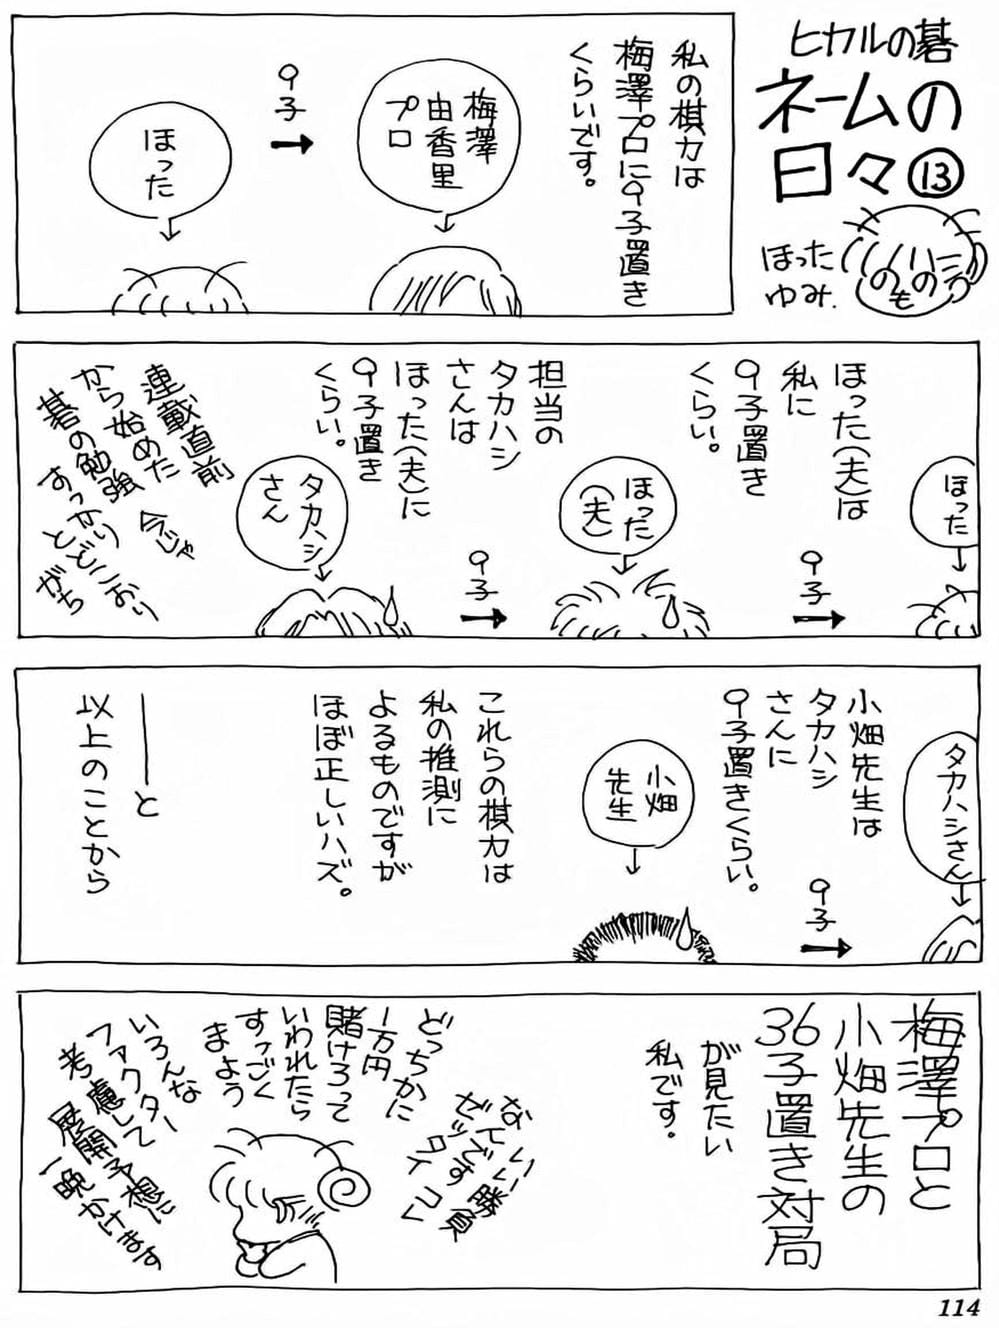 ヒカルの碁
ネームの
日々⑬
ほった
ゆみ.
のもの
私の棋力は
梅澤プロに9子置き
くらいです。
梅澤
由香里
プロ
9子
ほった
ほった
ほった(夫)は
私に
9子置き
くらい。
9子
ほった
(夫)
担当の
タカハシ
さんは
ほった(夫)に
9子置き
くらい。
9子
タカハシ
さん
連載直前
から始めた
碁の勉強
今じゃ
すっかり
とどこおり
がち
タカハシさん
小畑先生は
タカハシ
さんに
9子置きくらい。
9子
小畑
先生
これらの棋力は
私の推測に
よるものですが
ほぼ正しいハズ。
――と
以上のことから
梅澤プロと
小畑先生の
36子置き対局
が見たい
私です。
ないい勝負
ぜんです
ゼッタイコレ
どっちかに
1万円
賭けろって
いわれたら
すっごく
まよう
いろんな
ファクター
考慮して
展開予想に
一晩かけます
114